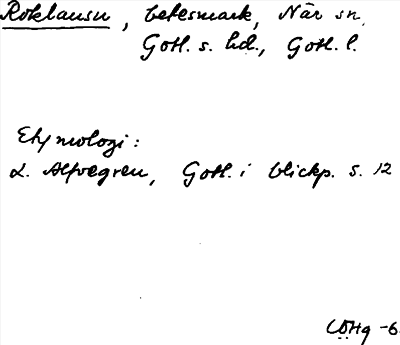 Roklausu, betesmark, När sn,
Gotl. s. hd., Gotl. l.
Etymologi:
L. Alfvegren, Gotl. i blickp. s. 12
CÖHg -6